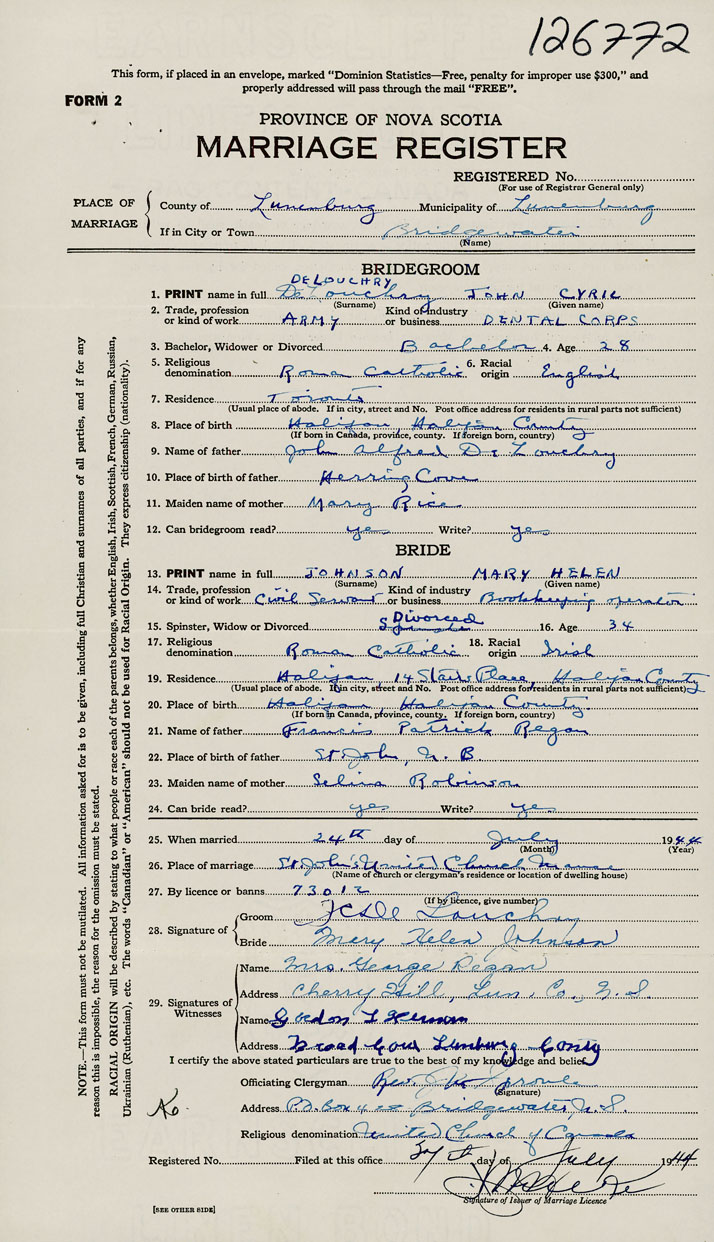 126772
This form, if placed in an envelope, marked "Dominion Statistics—Free, penalty for improper use $300," and
properly addressed will pass through the mail "FREE".
FORM 2
PROVINCE OF NOVA SCOTIA
MARRIAGE REGISTER
REGISTERED No.
(For use of Registrar General only)
PLACE OF MARRIAGE
County of Lunenburg Municipality of Lunenburg
If in City or Town Bridgewater
(Name)
BRIDEGROOM
DELOUCHRY
1. PRINT name in full DeLouchry JOHN CYRIL
(Surname) (Given name)
2. Trade, profession or kind of work ARMY Kind of industry or business DENTAL CORPS
3. Bachelor, Widower or Divorced Bachelor 4. Age 28
5. Religious denomination Roman Catholic 6. Racial origin English
7. Residence Toronto
(Usual place of abode. If in city, street and No. Post office address for residents in rural parts not sufficient)
8. Place of birth Halifax, Halifax County
(If born in Canada, province, county. If foreign born, country)
9. Name of father John Alfred DeLouchry
10. Place of birth of father Herring Cove
11. Maiden name of mother Mary Rice
12. Can bridegroom read? yes Write? yes
BRIDE
13. PRINT name in full JOHNSON MARY HELEN
(Surname) (Given name)
14. Trade, profession or kind of work Civil Servant Kind of industry or business Bookkeeping operator
Divorced
15. Spinster, Widow or Divorced Spinster 16. Age 34
17. Religious denomination Roman Catholic 18. Racial origin Irish
19. Residence Halifax, 14 Place, Halifax County
(Usual place of abode. If in city, street and No. Post office address for residents in rural parts not sufficient)
20. Place of birth Halifax, Halifax County
(If born in Canada, province, county. If foreign born, country)
21. Name of father Francis Patrick Regan
22. Place of birth of father St. John, N. B.
23. Maiden name of mother Selina Robinson
24. Can bride read? yes Write? yes
25. When married 24th day of July 1944
(Month) (Year)
26. Place of marriage St. John's United Church Manse
(Name of church or clergyman's residence or location of dwelling house)
27. By licence or banns 73012
(If by licence, give number)
28. Signature of
Groom JC DeLouchry
Bride Mary Helen Johnson
29. Signatures of Witnesses
Name Mrs. George Regan
Address Cherry Hill, Lun. Co., N. S.
Name Gordon L
Address Broad Cove Lunenburg County
I certify the above stated particulars are true to the best of my knowledge and belief,
Officiating Clergyman Rev. Sproule
(Signature)
Address P. box Bridgewater, N. S.
Religious denomination United Church of Canada
Registered No. Filed at this office day of July 1944
Signature of Issuer of Marriage Licence
[SEE OTHER SIDE]
NOTE.—This form must not be mutilated. All information asked for is to be given, including full Christian and surnames of all parties, and if for any
reason this is impossible, the reason for the omission must be stated.
RACIAL ORIGIN will be described by stating to what people or race each of the parents belongs, whether English, Irish, Scottish, French, German, Russian,
Ukrainian (Ruthenian), etc. The words "Canadian" or "American" should not be used for Racial Origin. They express citizenship (nationality).